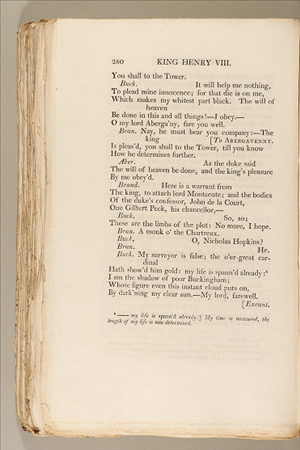 280 KING HENRY VIII.
You shall to the Tower.
Buck. It will help me nothing,
To plead mine innocence; for that die is on me,
Which makes my whitest part black. The will of
heaven
Be done in this and all things!—I obey.—
O my lord Aberga'ny, fare you well.
Bran. Nay, he must bear you company:—The
king [To ABERGAVENNY.
Is pleas'd, you shall to the Tower, till you know
How he determines further.
Aber. As the duke said
The will of heaven be done, and the king's pleasure
By me obey'd.
Brand. Here is a warrant from
The king, to attach lord Montacute; and the bodies
Of the duke's confessor, John de la Court,
One Gilbert Peck, his chancellor,—
Buck. So, so;
These are the limbs of the plot: No more, I hope.
Bran. A monk o' the Chartreux.
Buck. O, Nicholas Hopkins?
Bran. He.
Buck. My surveyor is false; the o'er-great car-
dinal
Hath show'd him gold: my life is spann'd already:⁶
I am the shadow of poor Buckingham;
Whose figure even this instant cloud puts on,
By dark'ning my clear sun.—My lord, farewell.
[Exeunt.
⁶ —— my life is spann'd already:] My time is measured, the
length of my life is now determined.